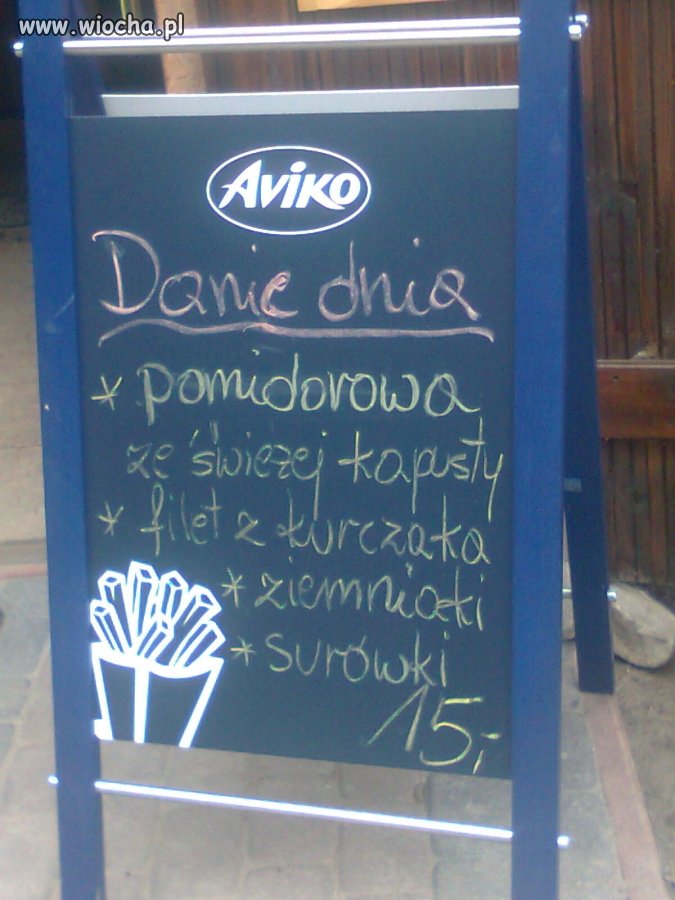 www.wiocha.pl
Aviko
Danie dnia
* pomidorowa
ze świeżej kapusty
* filet z kurczaka
* ziemniaki
* surówki
15,-